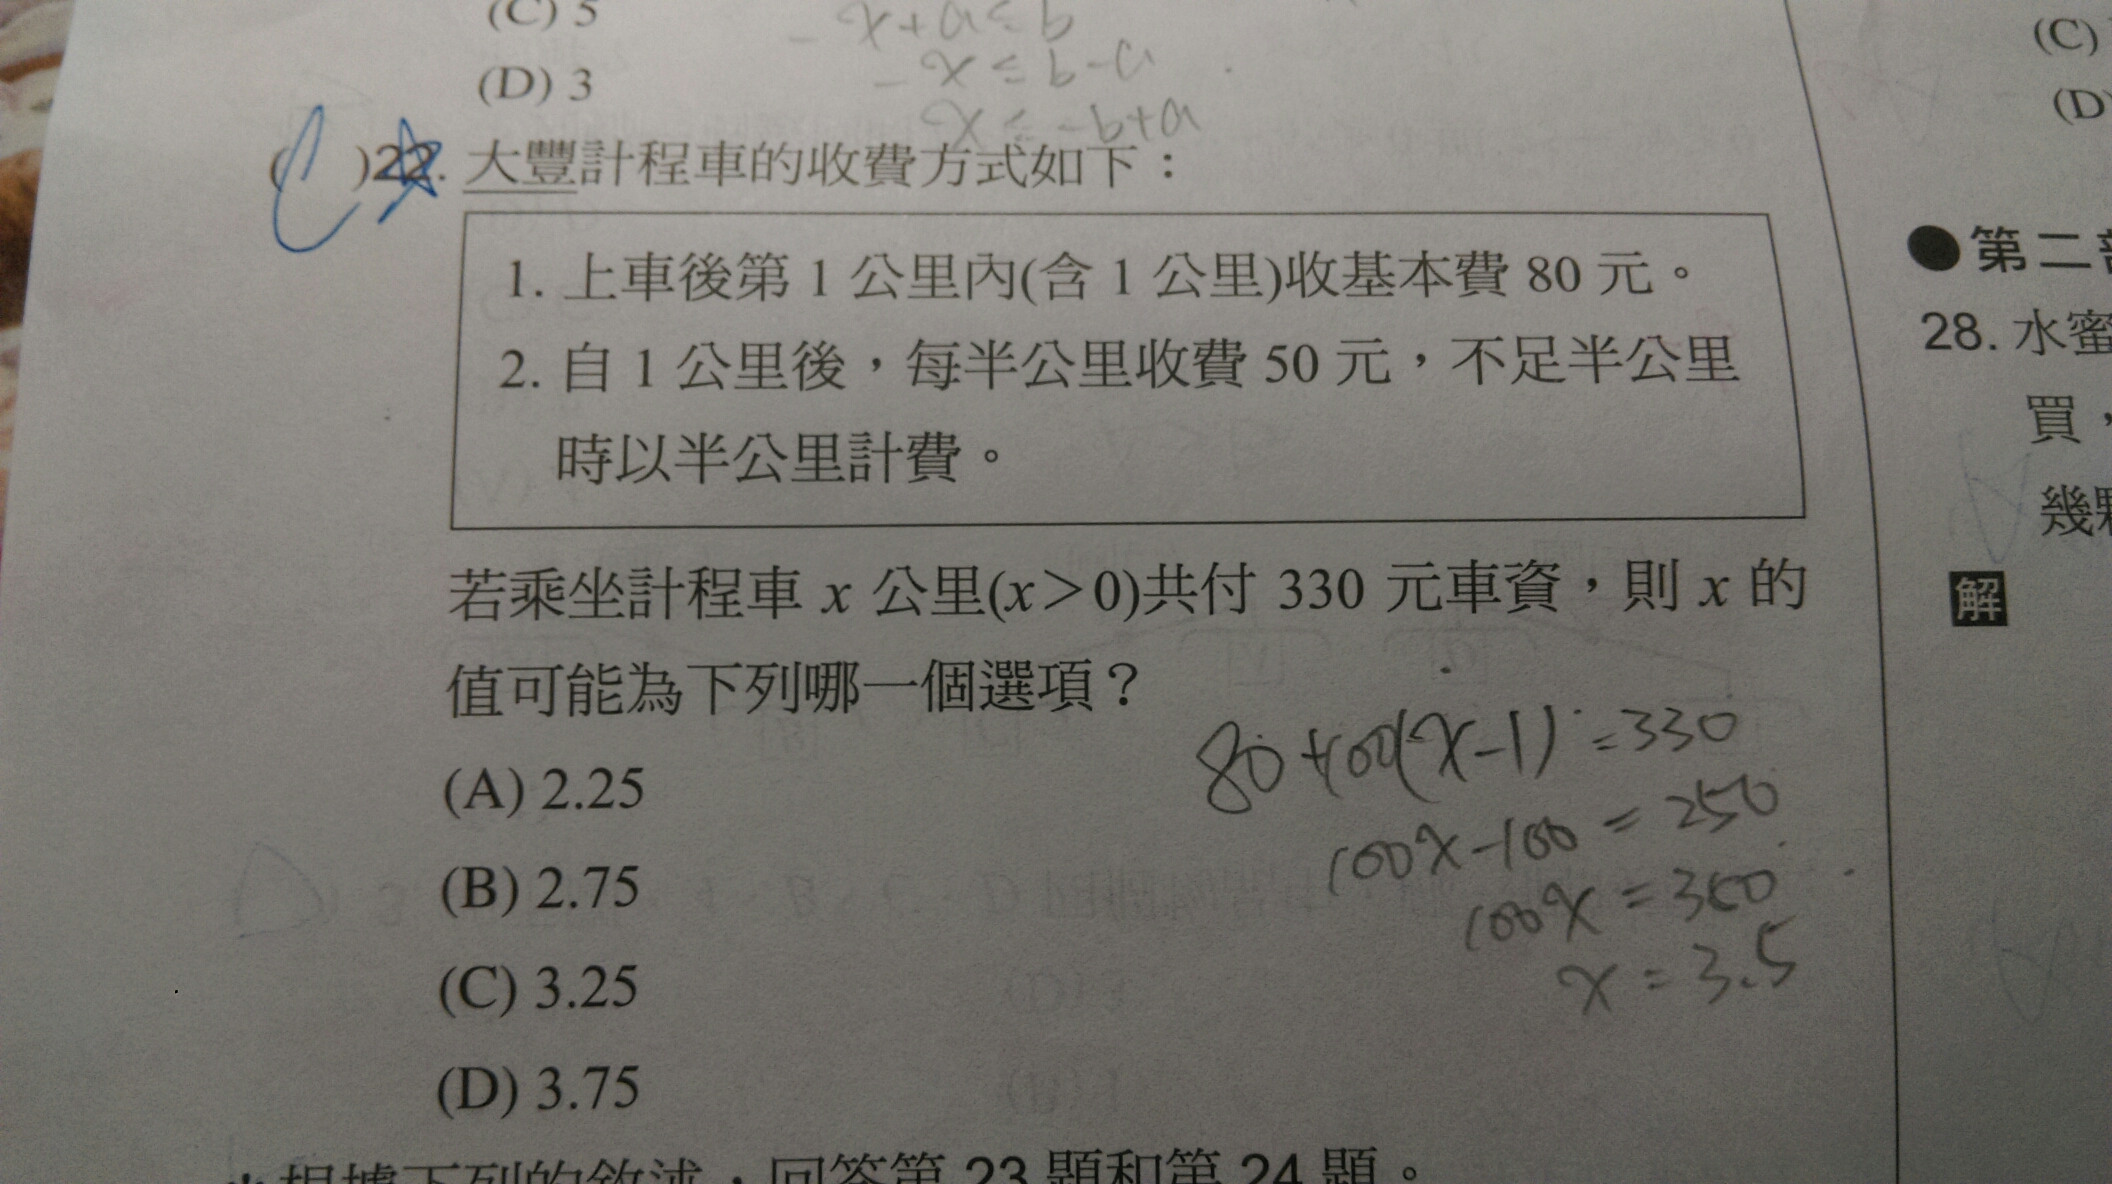 (C) 5
(D) 3
( )22. 大豐計程車的收費方式如下：
1. 上車後第 1 公里內(含 1 公里)收基本費 80 元。
2. 自 1 公里後，每半公里收費 50 元，不足半公里
時以半公里計費。
若乘坐計程車 x 公里(x＞0)共付 330 元車資，則 x 的
值可能為下列哪一個選項？
(A) 2.25
(B) 2.75
(C) 3.25
(D) 3.75
80+100(x-1)=330
100x-100=250
100x=350
x=3.5
＊根據下列的敘述，回答第 23 題和第 24 題。
(C)
(D)
●第二部
28. 水蜜
買，
幾顆
解